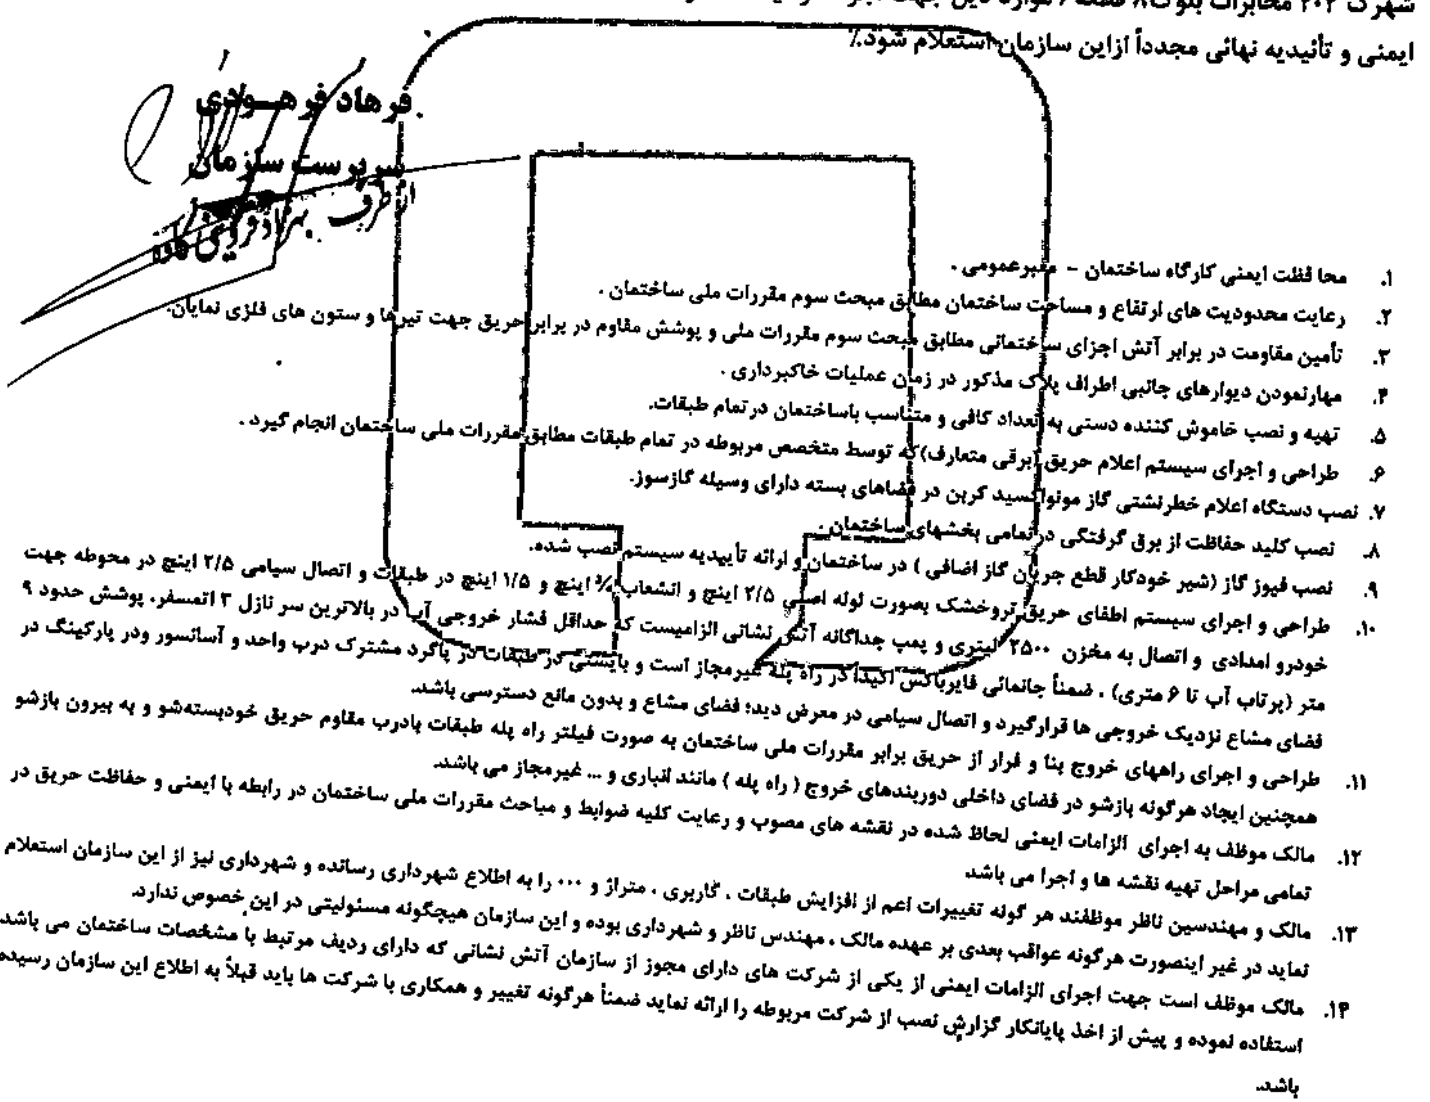 شهرک ۲۰۲ مخابرات بلوک ۸ قطعه
ایمنی و تأئیدیه نهائی مجدداً ازاین سازمان استعلام شود.٪
فرهاد فرهـودی
سرپرست سازمان
از طرف بهزاد
۱. محا فظت ایمنی کارگاه ساختمان – معبرعمومی .
۲. رعایت محدودیت های ارتفاع و مساحت ساختمان مطابق مبحث سوم مقررات ملی ساختمان .
۳. تأمین مقاومت در برابر آتش اجزای ساختمانی مطابق مبحث سوم مقررات ملی و پوشش مقاوم در برابر حریق جهت تیرها و ستون های فلزی نمایان.
۴. مهارنمودن دیوارهای جانبی اطراف پلاک مذکور در زمان عملیات خاکبرداری .
۵. تهیه و نصب خاموش کننده دستی به تعداد کافی و متناسب باساختمان درتمام طبقات.
۶. طراحی و اجرای سیستم اعلام حریق (برقی متعارف)که توسط متخصص مربوطه در تمام طبقات مطابق مقررات ملی ساختمان انجام گیرد .
۷. نصب دستگاه اعلام خطرنشتی گاز مونواکسید کربن در فضاهای بسته دارای وسیله گازسوز.
۸. نصب کلید حفاظت از برق گرفتگی درتمامی بخشهای ساختمان .
۹. نصب فیوز گاز (شیر خودکار قطع جریان گاز اضافی ) در ساختمان و ارائه تأییدیه سیستم نصب شده.
۱۰. طراحی و اجرای سیستم اطفای حریق تروخشک بصورت لوله اصلی ۲/۵ اینچ و انشعاب ¾ اینچ و ۱/۵ اینچ در طبقات و اتصال سیامی ۲/۵ اینچ در محوطه جهت
خودرو امدادی و اتصال به مخزن ۲۵۰۰ لیتری و پمپ جداگانه آتش نشانی الزامیست که حداقل فشار خروجی آب در بالاترین سر نازل ۳ اتمسفر، پوشش حدود ۹
متر (پرتاب آب تا ۶ متری) . ضمناً جانمائی فایرباکس اکیداً در راه پله غیرمجاز است و بایستی در طبقات در پاگرد مشترک درب واحد و آسانسور ودر پارکینگ در
فضای مشاع نزدیک خروجی ها قرارگیرد و اتصال سیامی در معرض دید؛ فضای مشاع و بدون مانع دسترسی باشد.
۱۱. طراحی و اجرای راههای خروج بنا و فرار از حریق برابر مقررات ملی ساختمان به صورت فیلتر راه پله طبقات بادرب مقاوم حریق خودبسته‌شو و به بیرون بازشو
همچنین ایجاد هرگونه بازشو در فضای داخلی دوربندهای خروج ( راه پله ) مانند انباری و ... غیرمجاز می باشد.
۱۲. مالک موظف به اجرای الزامات ایمنی لحاظ شده در نقشه های مصوب و رعایت کلیه ضوابط و مباحث مقررات ملی ساختمان در رابطه با ایمنی و حفاظت حریق در
تمامی مراحل تهیه نقشه ها و اجرا می باشد
۱۳. مالک و مهندسین ناظر موظفند هر گونه تغییرات اعم از افزایش طبقات ، کاربری ، متراژ و ... را به اطلاع شهرداری رسانده و شهرداری نیز از این سازمان استعلام
نماید در غیر اینصورت هرگونه عواقب بعدی بر عهده مالک ، مهندس ناظر و شهرداری بوده و این سازمان هیچگونه مسئولیتی در این خصوص ندارد.
۱۴. مالک موظف است جهت اجرای الزامات ایمنی از یکی از شرکت های دارای مجوز از سازمان آتش نشانی که دارای ردیف مرتبط با مشخصات ساختمان می باشد
استفاده نموده و پیش از اخذ پایانکار گزارش نصب از شرکت مربوطه را ارائه نماید ضمناً هرگونه تغییر و همکاری با شرکت ها باید قبلاً به اطلاع این سازمان رسیده
باشد.